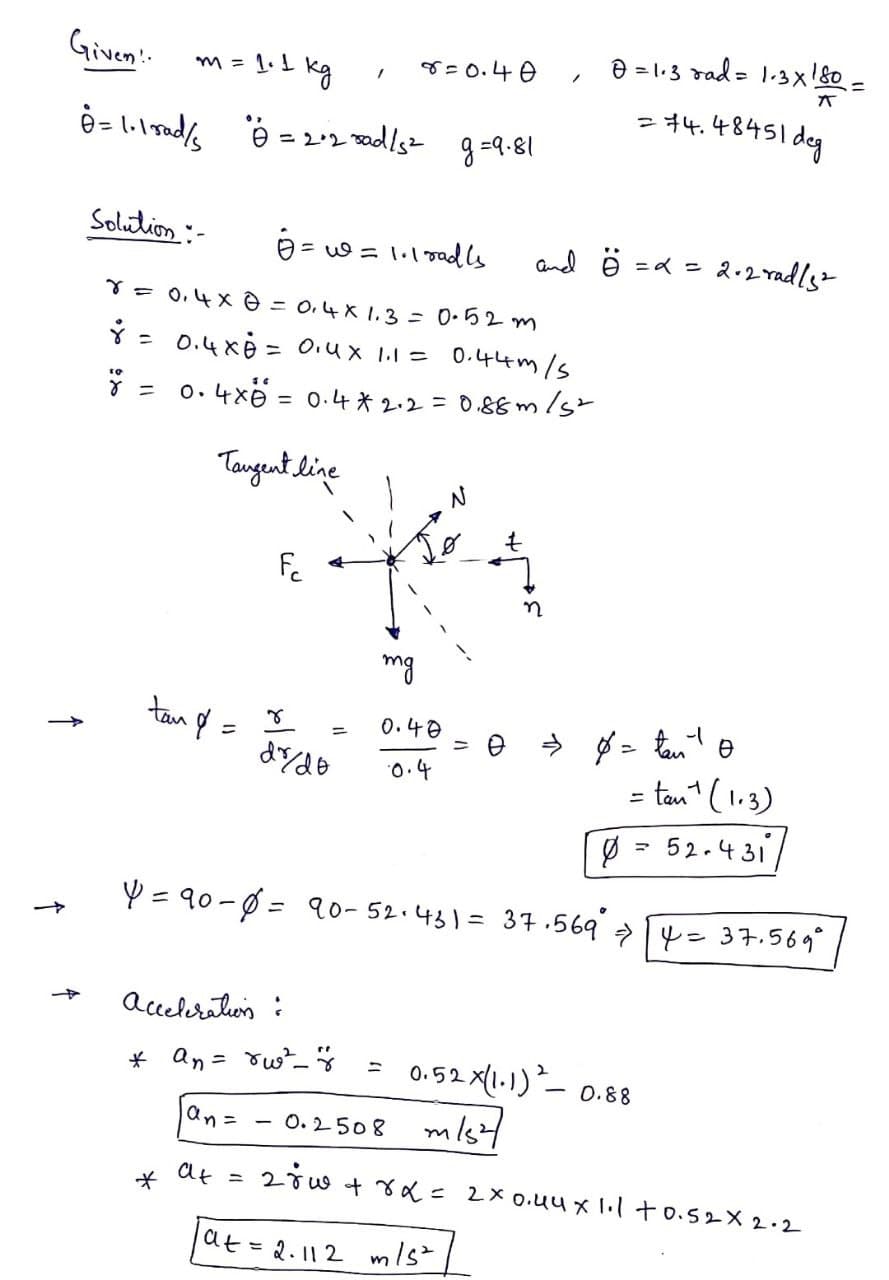 Given:- m = 1.1 kg , r = 0.4 θ , θ = 1.3 rad = 1.3 x 180/π =
θ̇ = 1.1 rad/s θ̈ = 2.2 rad/s² g = 9.81 = 74.48451 deg
Solution :-
θ̇ = ω = 1.1 rad/s and θ̈ = α = 2.2 rad/s²
r = 0.4 x θ = 0.4 x 1.3 = 0.52 m
ṙ = 0.4 x θ̇ = 0.4 x 1.1 = 0.44 m/s
r̈ = 0.4 x θ̈ = 0.4 * 2.2 = 0.88 m/s²
Tangent line
N
ø t
Fc
n
mg
→ tan ø = r / dr/dθ = 0.4θ / 0.4 = θ ⇒ ø = tan⁻¹ θ
= tan⁻¹ (1.3)
ø = 52.431°
→ Ψ = 90 - ø = 90 - 52.431 = 37.569° ⇒ Ψ = 37.569°
→ acceleration :
* an = rω² - r̈ = 0.52 x (1.1)² - 0.88
an = - 0.2508 m/s²
* at = 2ṙω + rα = 2 x 0.44 x 1.1 + 0.52 x 2.2
at = 2.112 m/s²